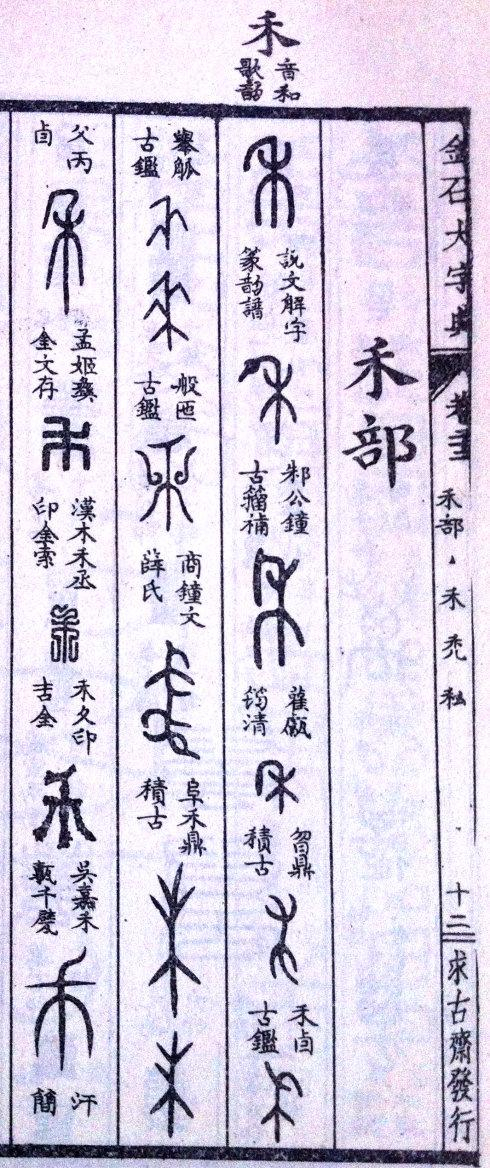 禾
音和
歌韵
金石大字典
卷二十三
禾部 禾 禿 私
十二
求古齋發行
禾部
說文解字
篆韵譜
邾公鐘
古籀補
雈甗
筠清
曶鼎
積古
禾卣
古鑑
舉觚
古鑑
般匜
古鑑
商鐘文
薛氏
阜禾鼎
積古
父丙
卣
孟姬
金文存
漢木禾丞
印金索
禾久印
吉金
吳嘉禾
甎千甓
汗
簡